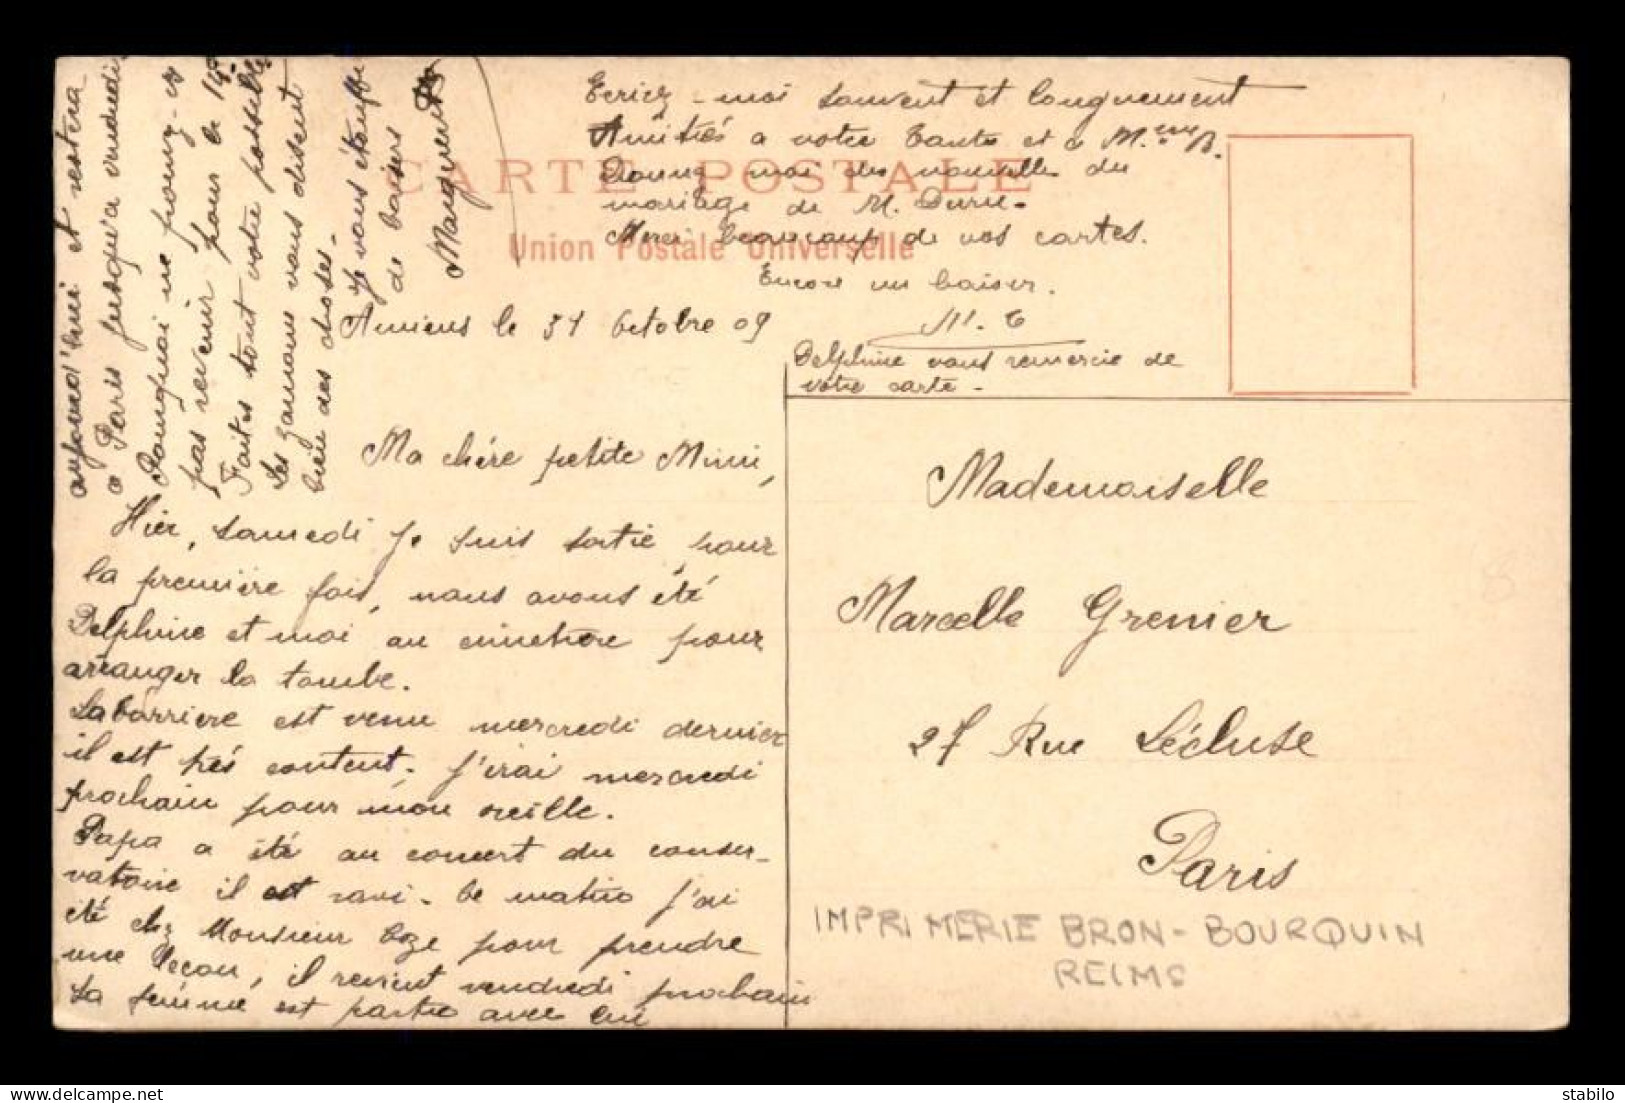 CARTE POSTALE
Union Postale Universelle
Amiens le 31 Octobre 09
Ma chère petite Mimi,
Hier, samedi je suis sortie pour
la première fois, nous avons été
Delphine et moi au cimetière pour
arranger la tombe.
Labarrière est venu mercredi dernier
il est très content. J'irai mercredi
prochain pour mon oreille.
Papa a été au concert du conser-
vatoire il est ravi. Ce matin j'ai
été chez Monsieur pour prendre
une leçon, il revient vendredi prochain
Sa femme est partie avec lui
aujourd'hui et restera
à Paris jusqu'à vendredi
Pourquoi ne pouvez-vs
pas revenir pour le 14
Faites tout votre possible
Les gamins vous disent
bien des choses.
Je vous étouffe
de baisers
Marguerite
Ecriez-moi souvent et longuement
Amitiés à votre tante et à M.me B.
Donnez moi des nouvelles du
mariage de M.
Merci beaucoup de vos cartes.
Encore un baiser.
M. C
Delphine vous remercie de
votre carte -
Mademoiselle
Marcelle Grenier
27 Rue Lécluse
Paris
IMPRIMERIE BRON-BOURQUIN
REIMS
stabilo